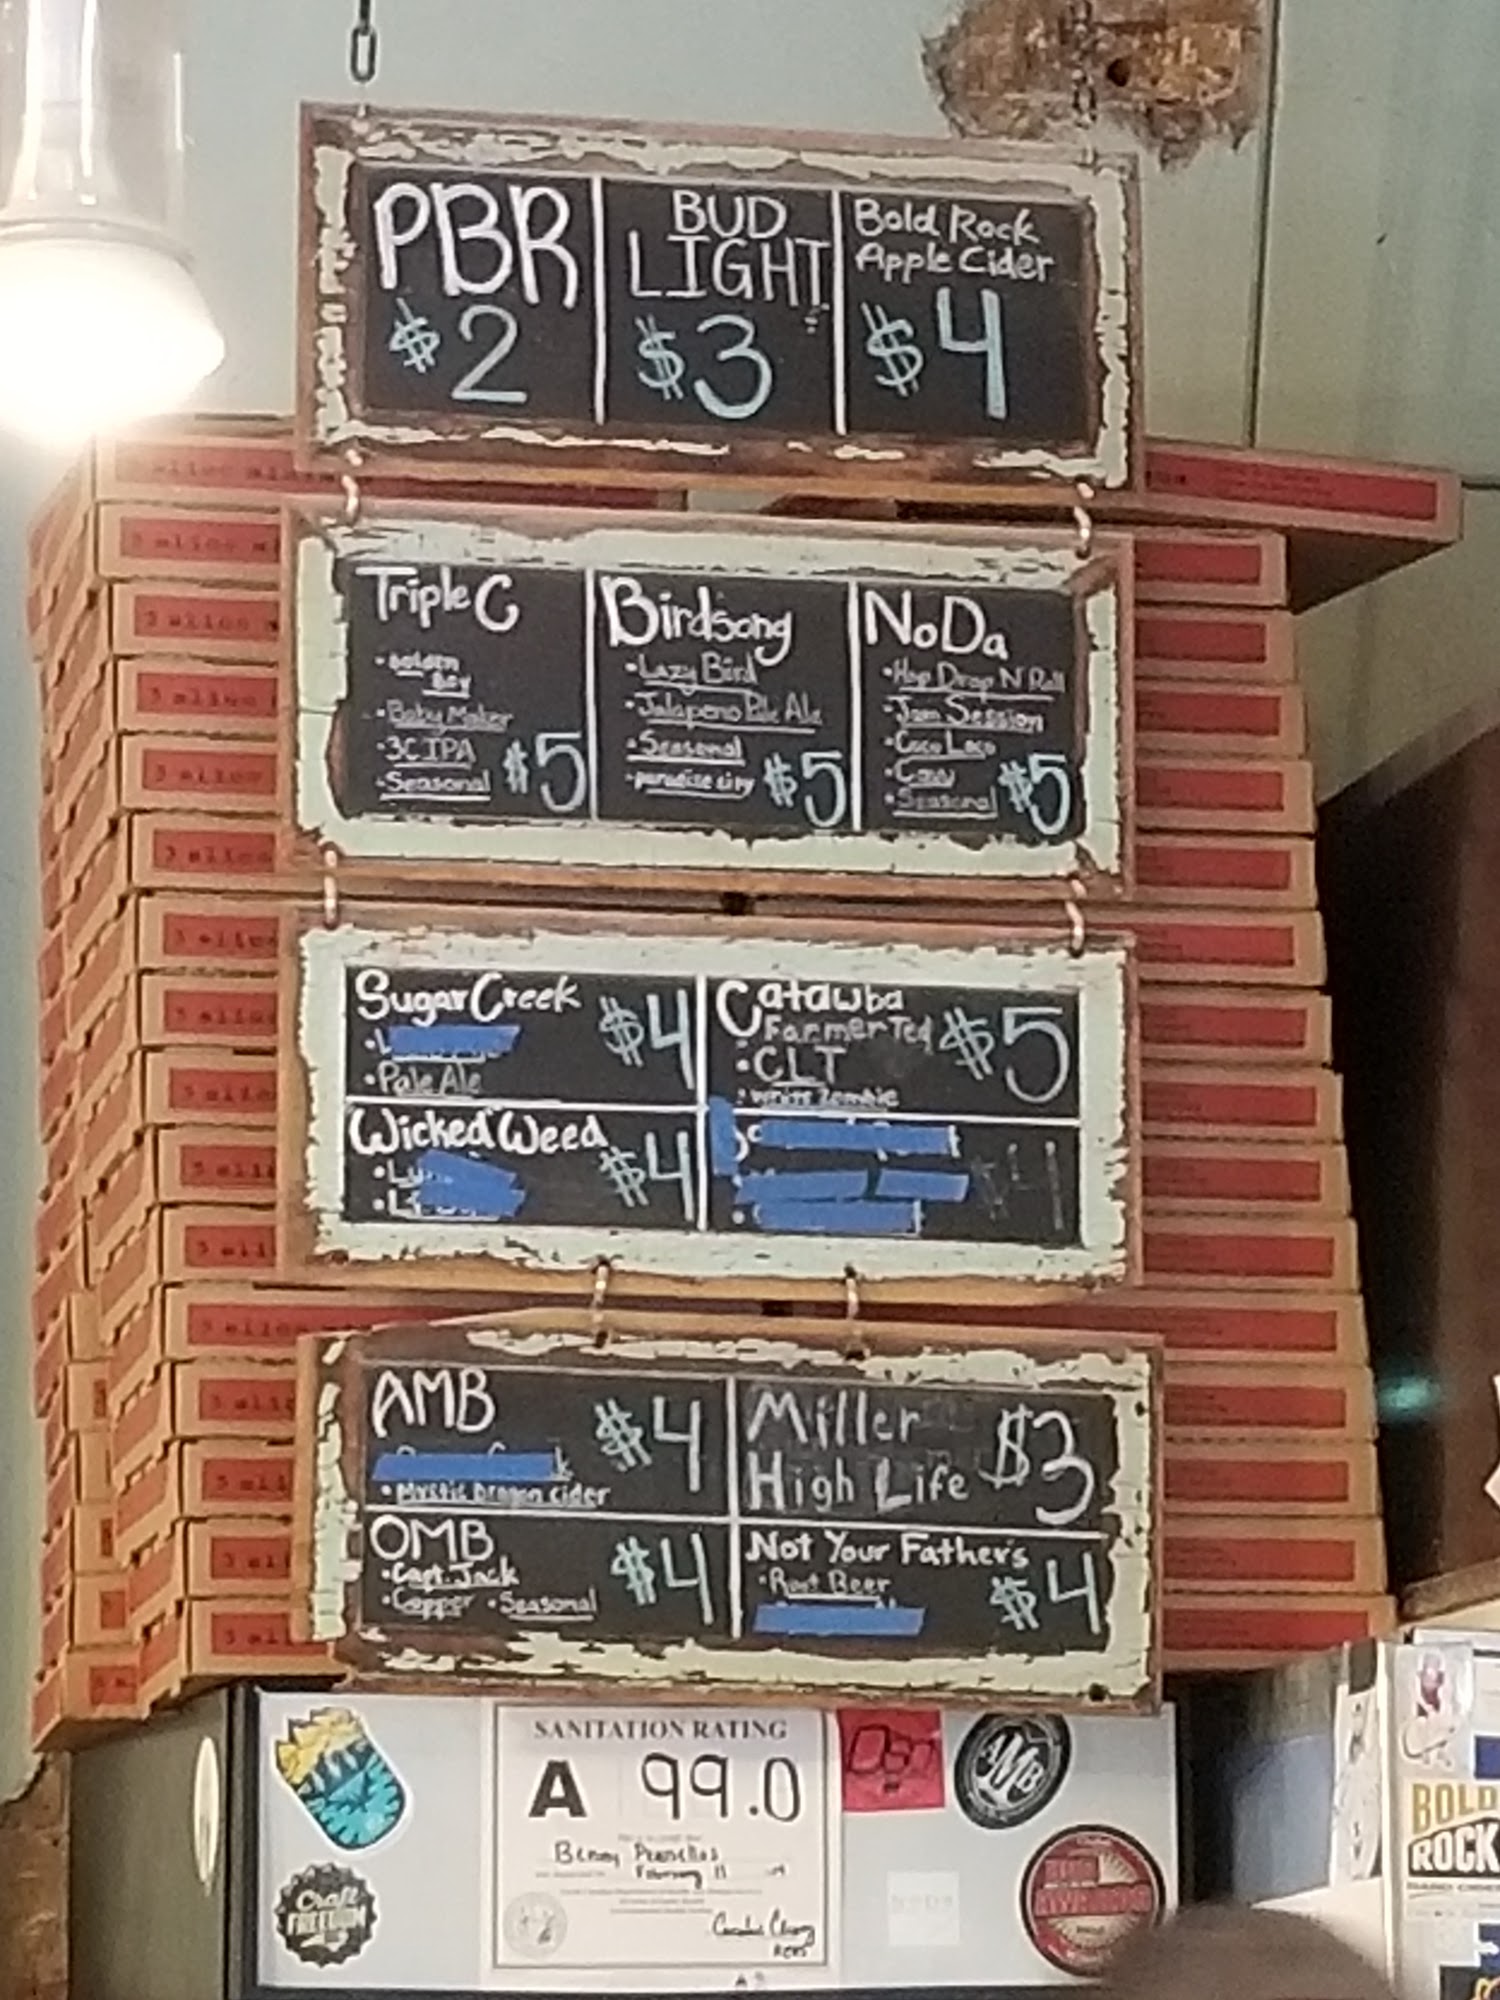 PBR
$2
BUD
LIGHT
$3
Bold Rock
Apple Cider
$4
Triple C
• Golden
Boy
• Baby Maker
• 3C IPA
• Seasonal
$5
Birdsong
• Lazy Bird
• Jalapeno Pale Ale
• Seasonal
• paradise city
$5
NoDa
• Hop Drop N Roll
• Jam Session
• Coco Loco
• Cavu
• Seasonal
$5
Sugar Creek
$4
• Pale Ale
Catawba
$5
• Farmer Ted
• CLT
• White Zombie
Wicked Weed
$4
AMB
$4
• Mystic Dragon cider
Miller
High Life
$3
OMB
• Capt. Jack
• Copper • Seasonal
$4
Not Your Father's
• Root Beer
$4
SANITATION RATING
A 99.0
February 11
AMB
Craft
FREEDOM
BOLD
ROCK